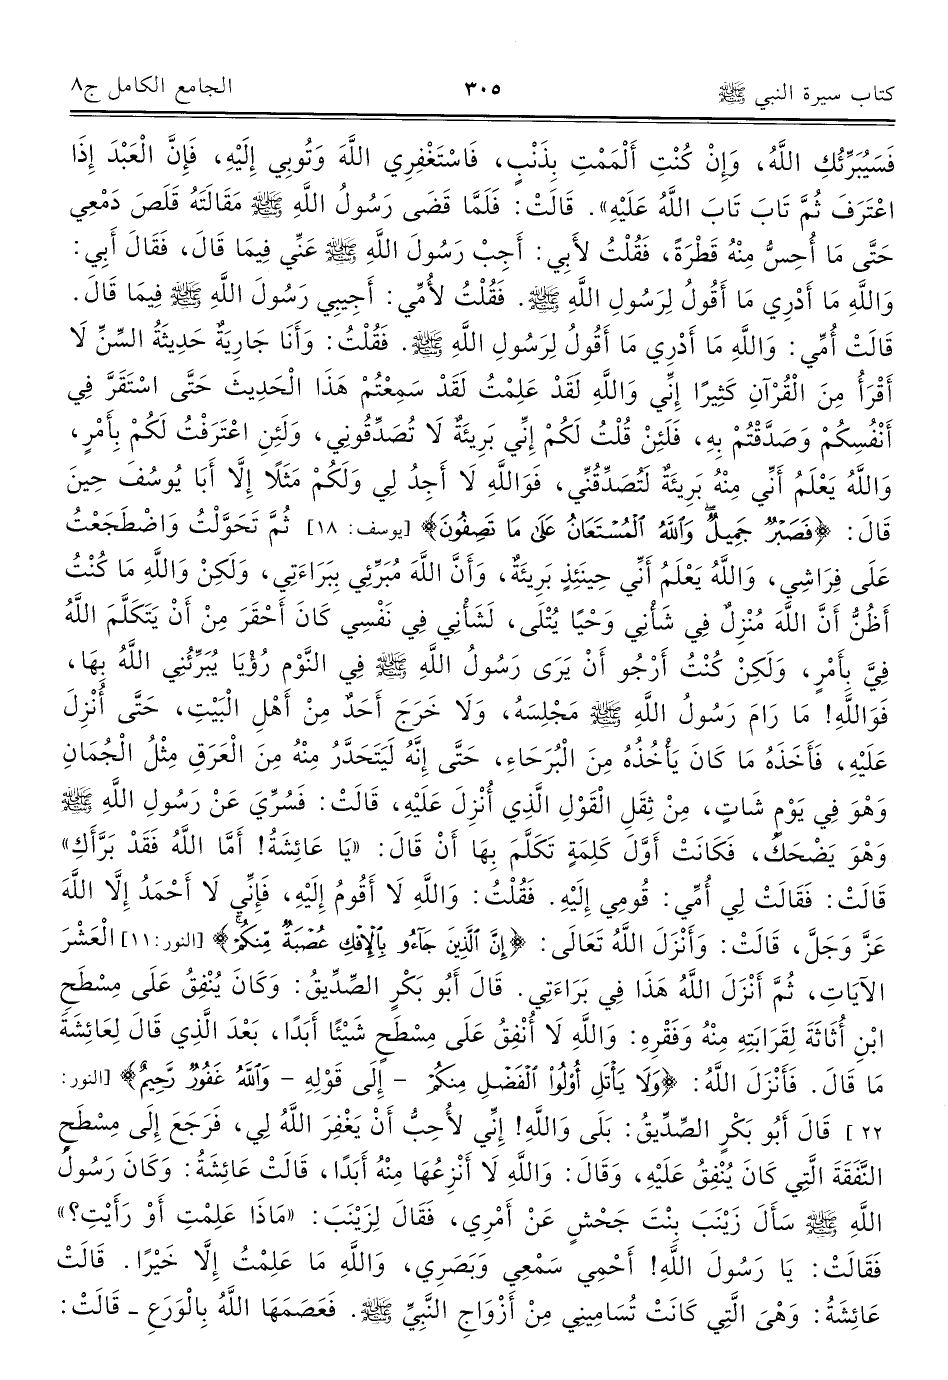 كتاب سيرة النبي ﷺ ٣٠٥ الجامع الكامل ج٨
فَسَيُبَرِّئُكِ اللَّهُ، وَإِنْ كُنْتِ أَلْمَمْتِ بِذَنْبٍ، فَاسْتَغْفِرِي اللَّهَ وَتُوبِي إِلَيْهِ، فَإِنَّ الْعَبْدَ إِذَا
اعْتَرَفَ ثُمَّ تَابَ تَابَ اللَّهُ عَلَيْهِ». قَالَتْ: فَلَمَّا قَضَى رَسُولُ اللَّهِ ﷺ مَقَالَتَهُ قَلَصَ دَمْعِي
حَتَّى مَا أُحِسُّ مِنْهُ قَطْرَةً، فَقُلْتُ لأَبِي: أَجِبْ رَسُولَ اللَّهِ ﷺ عَنِّي فِيمَا قَالَ، فَقَالَ أَبِي:
وَاللَّهِ مَا أَدْرِي مَا أَقُولُ لِرَسُولِ اللَّهِ ﷺ. فَقُلْتُ لأُمِّي: أَجِيبِي رَسُولَ اللَّهِ ﷺ فِيمَا قَالَ.
قَالَتْ أُمِّي: وَاللَّهِ مَا أَدْرِي مَا أَقُولُ لِرَسُولِ اللَّهِ ﷺ. فَقُلْتُ: وَأَنَا جَارِيَةٌ حَدِيثَةُ السِّنِّ لَا
أَقْرَأُ مِنَ الْقُرْآنِ كَثِيرًا إِنِّي وَاللَّهِ لَقَدْ عَلِمْتُ لَقَدْ سَمِعْتُمْ هَذَا الْحَدِيثَ حَتَّى اسْتَقَرَّ فِي
أَنْفُسِكُمْ وَصَدَّقْتُمْ بِهِ، فَلَئِنْ قُلْتُ لَكُمْ إِنِّي بَرِيئَةٌ لَا تُصَدِّقُونِي، وَلَئِنِ اعْتَرَفْتُ لَكُمْ بِأَمْرٍ،
وَاللَّهُ يَعْلَمُ أَنِّي مِنْهُ بَرِيئَةٌ لَتُصَدِّقُنِّي، فَوَاللَّهِ لَا أَجِدُ لِي وَلَكُمْ مَثَلًا إِلَّا أَبَا يُوسُفَ حِينَ
قَالَ: ﴿فَصَبْرٌ جَمِيلٌ وَاللَّهُ الْمُسْتَعَانُ عَلَى مَا تَصِفُونَ﴾ [يوسف: ١٨] ثُمَّ تَحَوَّلْتُ وَاضْطَجَعْتُ
عَلَى فِرَاشِي، وَاللَّهُ يَعْلَمُ أَنِّي حِينَئِذٍ بَرِيئَةٌ، وَأَنَّ اللَّهَ مُبَرِّئِي بِبَرَاءَتِي، وَلَكِنْ وَاللَّهِ مَا كُنْتُ
أَظُنُّ أَنَّ اللَّهَ مُنْزِلٌ فِي شَأْنِي وَحْيًا يُتْلَى، لَشَأْنِي فِي نَفْسِي كَانَ أَحْقَرَ مِنْ أَنْ يَتَكَلَّمَ اللَّهُ
فِيَّ بِأَمْرٍ، وَلَكِنْ كُنْتُ أَرْجُو أَنْ يَرَى رَسُولُ اللَّهِ ﷺ فِي النَّوْمِ رُؤْيَا يُبَرِّئُنِي اللَّهُ بِهَا،
فَوَاللَّهِ! مَا رَامَ رَسُولُ اللَّهِ ﷺ مَجْلِسَهُ، وَلَا خَرَجَ أَحَدٌ مِنْ أَهْلِ الْبَيْتِ، حَتَّى أُنْزِلَ
عَلَيْهِ، فَأَخَذَهُ مَا كَانَ يَأْخُذُهُ مِنَ الْبُرَحَاءِ، حَتَّى إِنَّهُ لَيَتَحَدَّرُ مِنْهُ مِنَ الْعَرَقِ مِثْلُ الْجُمَانِ
وَهْوَ فِي يَوْمٍ شَاتٍ، مِنْ ثِقَلِ الْقَوْلِ الَّذِي أُنْزِلَ عَلَيْهِ، قَالَتْ: فَسُرِّيَ عَنْ رَسُولِ اللَّهِ ﷺ
وَهْوَ يَضْحَكُ، فَكَانَتْ أَوَّلَ كَلِمَةٍ تَكَلَّمَ بِهَا أَنْ قَالَ: «يَا عَائِشَةُ! أَمَّا اللَّهُ فَقَدْ بَرَّأَكِ»
قَالَتْ: فَقَالَتْ لِي أُمِّي: قُومِي إِلَيْهِ. فَقُلْتُ: وَاللَّهِ لَا أَقُومُ إِلَيْهِ، فَإِنِّي لَا أَحْمَدُ إِلَّا اللَّهَ
عَزَّ وَجَلَّ، قَالَتْ: وَأَنْزَلَ اللَّهُ تَعَالَى: ﴿إِنَّ الَّذِينَ جَاءُو بِالْإِفْكِ عُصْبَةٌ مِنْكُمْ﴾ [النور: ١١] الْعَشْرَ
الآيَاتِ، ثُمَّ أَنْزَلَ اللَّهُ هَذَا فِي بَرَاءَتِي. قَالَ أَبُو بَكْرٍ الصِّدِّيقُ: وَكَانَ يُنْفِقُ عَلَى مِسْطَحِ
ابْنِ أُثَاثَةَ لِقَرَابَتِهِ مِنْهُ وَفَقْرِهِ: وَاللَّهِ لَا أُنْفِقُ عَلَى مِسْطَحٍ شَيْئًا أَبَدًا، بَعْدَ الَّذِي قَالَ لِعَائِشَةَ
مَا قَالَ. فَأَنْزَلَ اللَّهُ: ﴿وَلَا يَأْتَلِ أُولُوا الْفَضْلِ مِنكُمْ - إِلَى قَوْلِهِ - وَاللَّهُ غَفُورٌ رَّحِيمٌ﴾ [النور:
٢٢] قَالَ أَبُو بَكْرٍ الصِّدِّيقُ: بَلَى وَاللَّهِ! إِنِّي لأُحِبُّ أَنْ يَغْفِرَ اللَّهُ لِي، فَرَجَعَ إِلَى مِسْطَحٍ
النَّفَقَةَ الَّتِي كَانَ يُنْفِقُ عَلَيْهِ، وَقَالَ: وَاللَّهِ لَا أَنْزِعُهَا مِنْهُ أَبَدًا، قَالَتْ عَائِشَةُ: وَكَانَ رَسُولُ
اللَّهِ ﷺ سَأَلَ زَيْنَبَ بِنْتَ جَحْشٍ عَنْ أَمْرِي، فَقَالَ لِزَيْنَبَ: «مَاذَا عَلِمْتِ أَوْ رَأَيْتِ؟»
فَقَالَتْ: يَا رَسُولَ اللَّهِ! أَحْمِي سَمْعِي وَبَصَرِي، وَاللَّهِ مَا عَلِمْتُ إِلَّا خَيْرًا. قَالَتْ
عَائِشَةُ: وَهْيَ الَّتِي كَانَتْ تُسَامِينِي مِنْ أَزْوَاجِ النَّبِيِّ ﷺ. فَعَصَمَهَا اللَّهُ بِالْوَرَعِ - قَالَتْ: